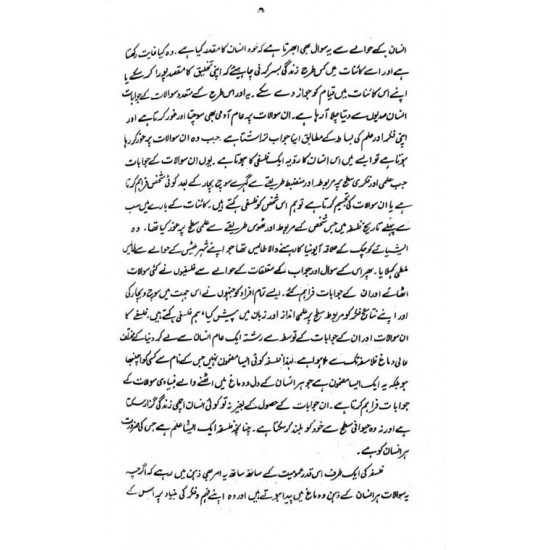 ۸
انسان کے حوالے سے یہ سوال بھی ابھرتا ہے کہ خود انسان کا مقصد کیا ہے۔ وہ کیا غایت رکھتا
ہے اور اسے کائنات میں کس طرح زندگی بسر کرنی چاہیئے کہ اپنی تخلیق کا مقصد پورا کر سکے یا
اپنے اس کائنات میں قیام کو جواز دے سکے۔ یہ اور اس طرح کے متعدد سوالات کے جوابات
انسان صدیوں سے دیتا چلا آ رہا ہے۔ ان سوالات پر عام آدمی بھی سوچتا اور غور کرتا ہے اور
اپنی فکر اور علم کی بساط کے مطابق اپنا جواب تراشتا ہے۔ جب وہ ان سوالات پر غور کر رہا
ہوتا ہے تو ایسے میں اس انسان کا رویہ ایک فلسفی کا سا ہوتا ہے۔ یوں ان سوالات کے جوابات
جب علمی اور فکری سطح پر مربوط اور منضبط طریقے سے گہرے سوچ بچار کے بعد کوئی شخص فراہم کرتا
ہے یا ان سوالات کی تجسیم کرتا ہے تو ہم اس شخص کو فلسفی کہتے ہیں۔ کائنات کے بارے میں سب
سے پہلے تاریخ فلسفہ میں جس شخص نے مربوط اور ٹھوس طریقے سے علمی سطح پر غور کیا تھا۔ وہ
ایشیائے کوچک کے علاقہ آیونیا کا رہنے والا طالیس تھا جو اپنے شہر ملیٹس کے حوالے سے طالیس
ملطی کہلایا۔ پھر اس کے سوال اور جواب کے متعلقات کے حوالے سے فلسفیوں نے کئی سوالات
اٹھائے اور ان کے جوابات فراہم کئے۔ ایسے تمام افراد کو جنہوں نے اس جہت میں سوچ و بچار کی
اور اپنے نتائج فکر کو مربوط سطح پر علمی انداز اور زبان میں پیش کیا، ہم فلسفی کہتے ہیں۔ فلسفے کا
ان سوالات اور ان کے جوابات کے توسط سے رشتہ ایک عام انسان سے لے کر دنیا کے مختلف
عالی دماغ فلاسفہ تک سے ہوا ہے۔ لہٰذا فلسفہ کوئی ایسا مضمون نہیں جس کے نام سے کسی کو اچنبھا
ہو بلکہ یہ ایک ایسا مضمون ہے جو ہر انسان کے دل و دماغ میں اٹھنے والے بنیادی سوالات کے
جوابات فراہم کرتا ہے۔ ان جوابات کے حصول کے بغیر نہ تو کوئی انسان اچھی زندگی گزار سکتا
ہے اور نہ وہ حیوانی سطح سے خود کو بلند کر سکتا ہے۔ چنانچہ فلسفہ ایک ایسا علم ہے جس کی ضرورت
ہر انسان کو ہے۔
فلسفہ کی ایک طرف اس قدر عمومیت کے ساتھ ساتھ یہ امر بھی ذہن میں رہے کہ اگرچہ
یہ سوالات ہر انسان کے ذہن و دماغ میں پیدا ہوتے ہیں اور وہ اپنے فہم و فکر کی بنیاد پر اس کے